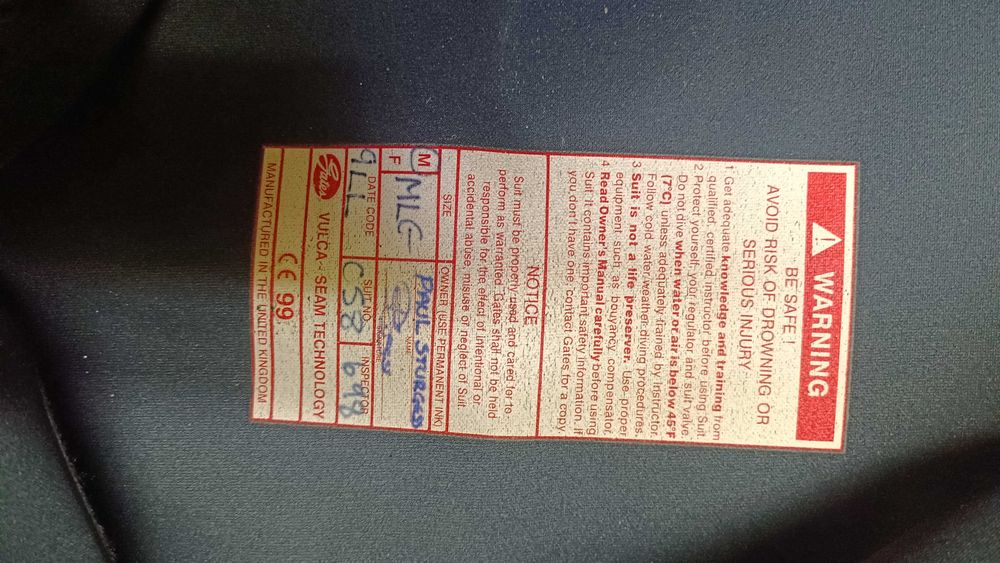 WARNING
BE SAFE !
AVOID RISK OF DROWNING OR
SERIOUS INJURY
1 Get adequate knowledge and training from
qualified, certified instructor, before using Suit.
2 Protect yourself, your regulator and suit valve.
Do not dive when water or air is below 45°F
(7°C) unless adequately trained by Instructor.
Follow cold water/weather diving procedures.
3 Suit is not a life preserver. Use proper
equipment such as bouyancy compensator.
4. Read Owner's Manual carefully before using
Suit. It contains important safety information. If
you don't have one, contact Gates for a copy.
NOTICE
Suit must be properly used and cared for to
perform as warranted. Gates shall not be held
responsible for the effect of intentional or
accidental abuse, misuse or neglect of Suit.
SIZE OWNER (USE PERMANENT INK)
M F MLG PAUL STURGESS
NAME
DATE CODE SUIT NO. INSPECTOR
9LL C58 698
Gates VULCA-SEAM TECHNOLOGY
CE 99
MANUFACTURED IN THE UNITED KINGDOM